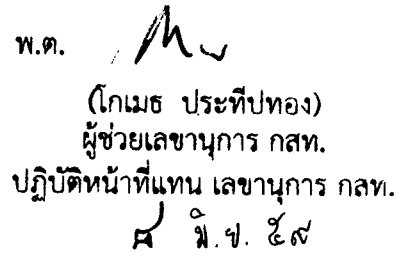 พ.ต.
(โกเมธ ประทีปทอง)
ผู้ช่วยเลขานุการ กสท.
ปฏิบัติหน้าที่แทน เลขานุการ กสท.
๘ มิ.ย. ๕๙